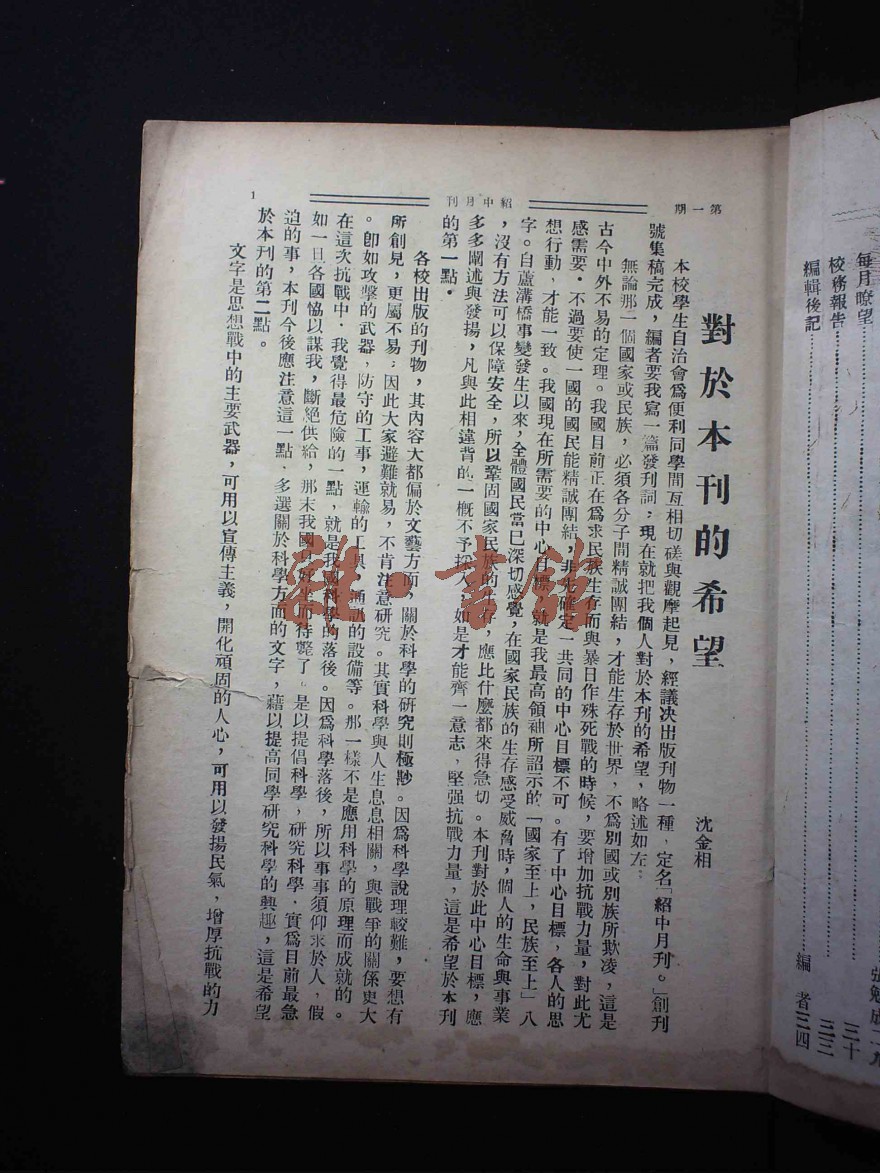 第一期
紹中月刊
1
對於本刊的希望
沈金相
本校學生自治會爲便利同學間互相切磋與觀摩起見，經議决出版刊物一種，定名「紹中月刊。」創刊
號集稿完成，編者要我寫一篇發刊詞；現在就把我個人對於本刊的希望，略述如左：
無論那一個國家或民族，必須各分子間精誠團結，才能生存於世界，不爲別國或別族所欺凌，這是
古今中外不易的定理。我國目前正在爲求民族生存而與暴日作殊死戰的時候，要增加抗戰力量，對此尤
感需要。不過要使一國的國民能精誠團結，非先確定一共同的中心目標不可。有了中心目標，各人的思
想行動，才能一致。我國現在所需要的中心目標，就是我最高領袖所詔示的「國家至上，民族至上」八
字。自蘆溝橋事變發生以來，全體國民當已深切感覺，在國家民族的生存感受威脅時，個人的生命與事業
，沒有方法可以保障安全，所以鞏固國家民族的生存，應比什麼都來得急切。本刊對於此中心目標，應
多多闡述與發揚，凡與此相違背的一概不予採入，如是才能齊一意志，堅强抗戰力量，這是希望於本刊
的第一點。
各校出版的刊物，其內容大都偏於文藝方面，關於科學的研究則極尠。因爲科學說理較難，要想有
所創見，更屬不易；因此大家避難就易，不肯注意研究。其實科學與人生息息相關，與戰爭的關係更大
。卽如攻擊的武器，防守的工事，運輸的工具，通訊的設備等。那一樣不是應用科學的原理而成就的。
在這次抗戰中，我覺得最危險的一點，就是我國科學的落後。因爲科學落後，所以事事須仰求於人，假
如一日各國恊以謀我，斷絕供給，那末我國只好坐而待斃了。是以提倡科學，研究科學，實爲目前最急
迫的事，本刊今後應注意這一點，多選關於科學方面的文字，藉以提高同學研究科學的興趣，這是希望
於本刊的第二點。
文字是思想戰中的主要武器，可用以宣傳主義，開化頑固的人心，可用以發揚民氣，增厚抗戰的力
每月瞭望
三十
校務報告
三三
編輯後記
編 者 三四